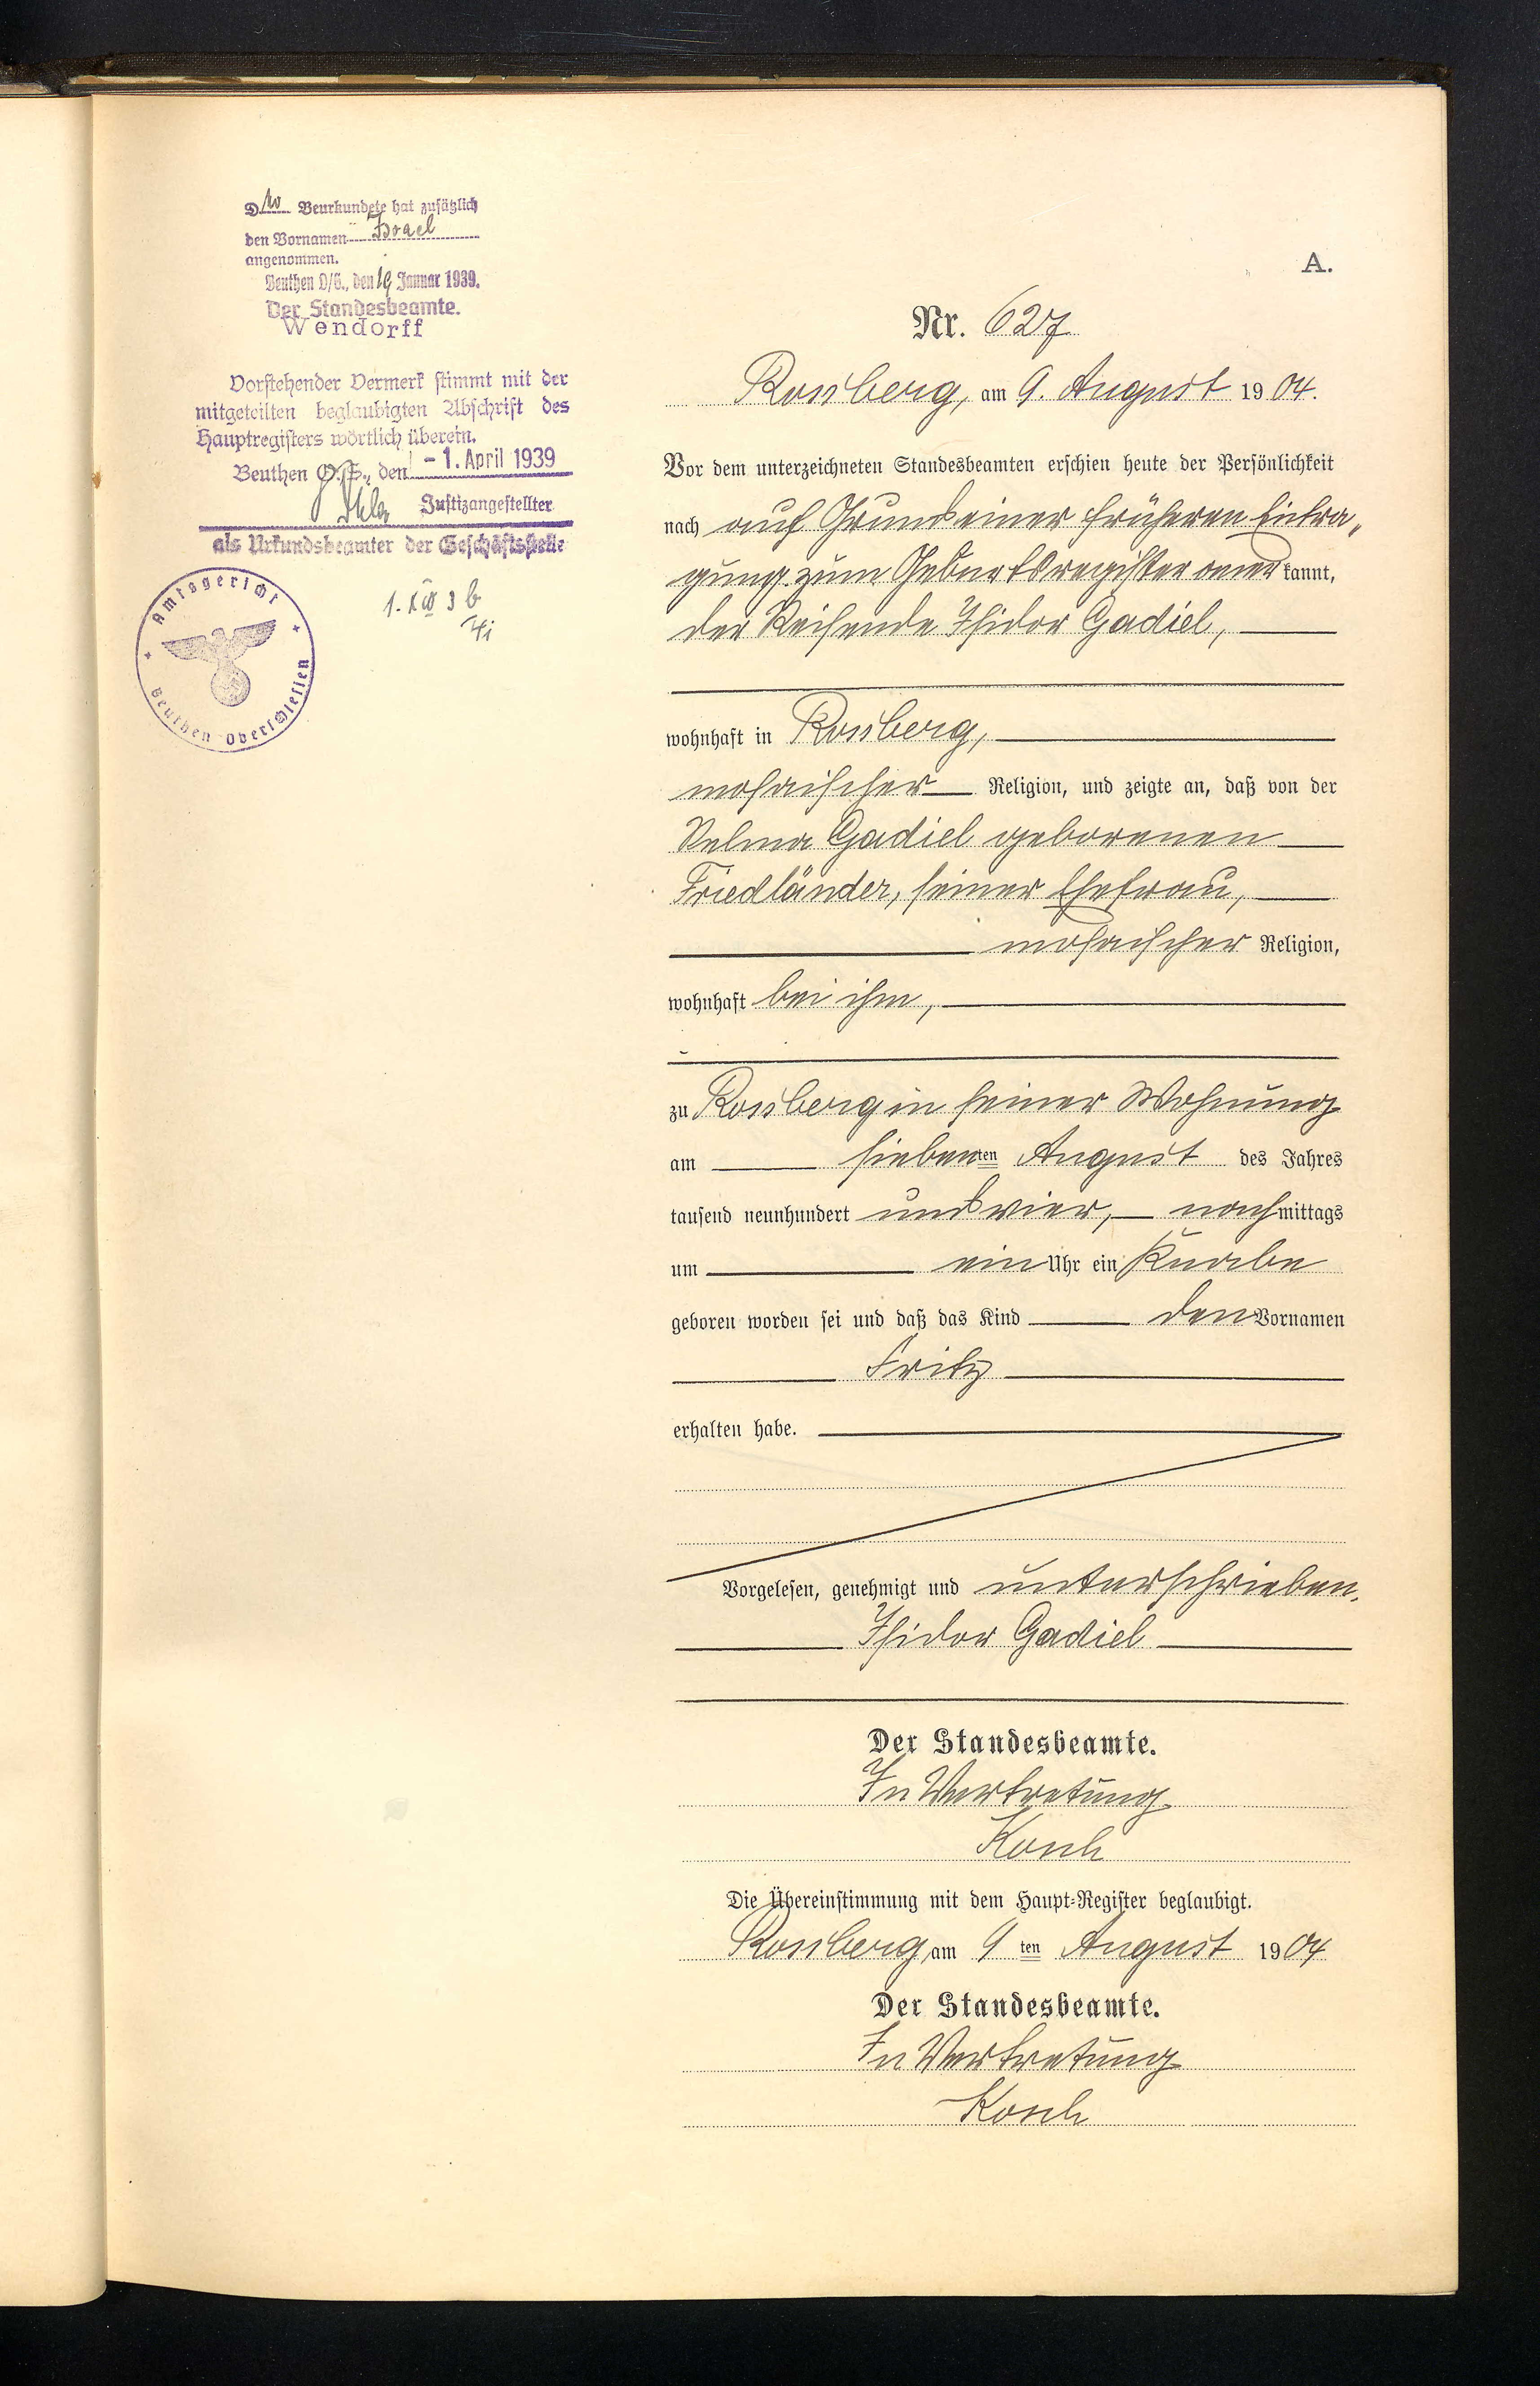 Der Beurkundete hat zusätzlich
den Vornamen Israel
angenommen.
Beuthen O/S., den 19 Januar 1939.
Der Standesbeamte.
Wendorff
Vorstehender Vermerk stimmt mit der
mitgeteilten beglaubigten Abschrift des
Hauptregisters wörtlich überein.
Beuthen O.S., den - 1. April 1939
Justizangestellter
als Urkundsbeamter der Geschäftsstelle
Amtsgericht
Beuthen Oberschlesien
A.
Nr. 627
Rossberg, am 9. August 1904.
Vor dem unterzeichneten Standesbeamten erschien heute der Persönlichkeit
nach auf Grund einer früheren Eintra-
gung zum Geburtsregister anerkannt,
der Reisende Isidor Gadiel,
wohnhaft in Rossberg,
mosaischer Religion, und zeigte an, daß von der
Selma Gadiel geborenen
Friedländer, seiner Ehefrau,
mosaischer Religion,
wohnhaft bei ihm,
zu Rossberg in seiner Wohnung
am siebenten August des Jahres
tausend neunhundert und vier, nachmittags
um ein Uhr ein Knabe
geboren worden sei und daß das Kind den Vornamen
Fritz
erhalten habe.
Vorgelesen, genehmigt und unterschrieben.
Isidor Gadiel
Der Standesbeamte.
In Vertretung
Kosch
Die Übereinstimmung mit dem Haupt-Register beglaubigt.
Rossberg, am 9ten August 1904
Der Standesbeamte.
In Vertretung
Kosch